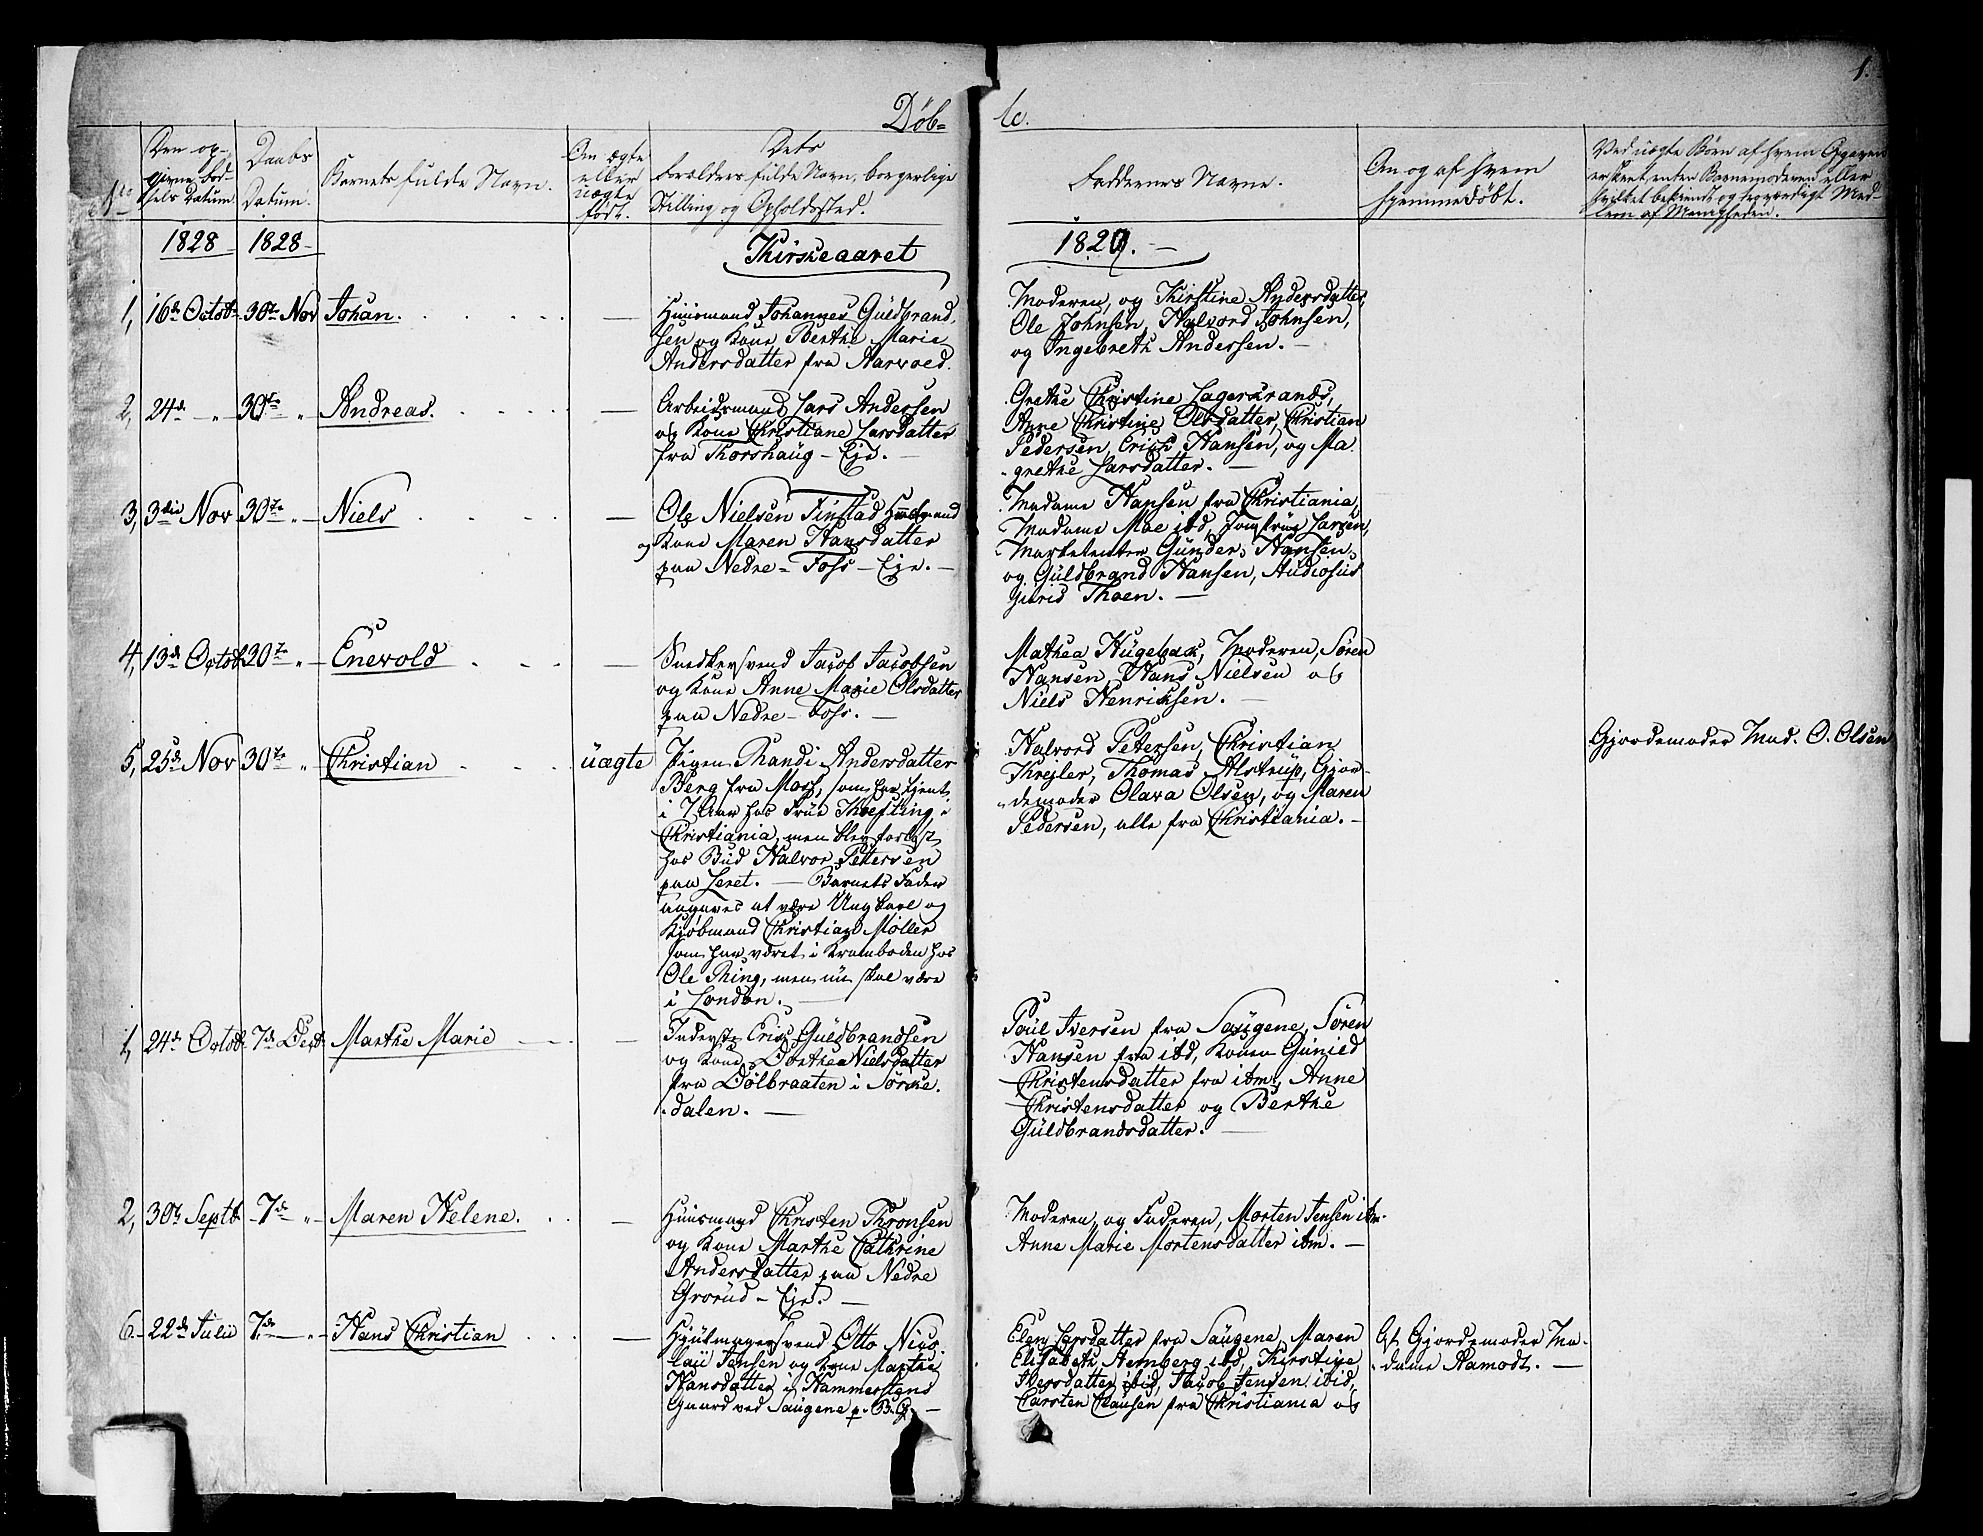 1.
Døb= te.
No
Den op-
givne Fød-
sels Datum
Daabs
Datum.
Barnets fulde Navn.
Om ægte
eller
uægte
født.
Dets
Forældres fulde Navn, borgerlige
Stilling og Opholdssted.
Faddernes Navne.
Om og af hvem
hjemmedøbt.
Ved uægte Børn af hvem Opgaven
er skeet, enten Barnemoderen eller
hvilket bekjendt og troværdigt Med-
lem af Menigheden.
1828 1828
Kirkeaaret
1829.
1, 16de Octob. 30te Nov Johan. —
Huusmand Johannes Guldbrand-
sen og Kone Berthe Marie
Andersdatter fra Aarvoed.
Moderen, og Kirstine Andersdatter,
Ole Johnsen, Halvord Johnsen,
og Ingebreth Andersen. —
2, 24de — „ 30te „ Andreas. —
Arbeidsmand Lars Andersen
og Kone Christiane Larsdatter
fra Thorshaug – Eje. —
Grethe Christine Lagerstrands,
Anne Christine Olsdatter, Christian
Pedersen, Erich Hansen, og Ma-
grethe Larsdatter. —
3, 3die Nov 30te „ – Niels —
Ole Nielsen Finstad Huusmand
og Kone Maren Hansdatter
paa Nedre – Foss – Eje. —
Madame Hansen fra Christiania,
Madame Moe ibd, Jomfrue Larsen,
Marketenter Gunder Hansen,
og Guldbrand Hansen, Studiosus
juris Thoen. —
4, 13de Octob. 30te „ – Enevold —
Snedkersvend Jacob Jacobsen
og Kone Anne Marie Olsdatter
paa Nedre – Foss. —
Mathea Hugebak, Moderen, Søren
Hansen, Hans Nielsen og
Niels Henricksen. —
5, 25de Nov 30te „ Christian uægte
Pigen Randi Andersdatter
Berg fra Moss, som har tjent
i 7 Aar hos Frue Thoefting i
Christiania, men blev forløst
hos Bud Halvor Pettersen
paa Leret. — Barnets Fader
angaves at være Ungkarl og
Kjøbmand Christian Møller
som har været i Kramboden hos
Ole Ring, men nu skal være
i London. —
Halvord Petersen, Christian
Krejler, Thomas Alstrup, Gjor-
demoder Olava Olsen, og Maren
Pedersen, alle fra Christiania. –
Gjordemoder Mad. O. Olsen
1, 24de Octob. 7de Decb. Marthe Marie —
Inderste Erich Guldbrandsen
og Kone Dorthea Nielsdatter
fra Dølbraaten i Sørke-
dalen. —
Poul Iversen fra Saugene, Søren
Hansen fra ibd, Konen Gunild
Christensdatter fra ibm, Anne
Christensdatter og Berthe
Guldbrandsdatter. —
2, 30te Septb. 7de „ – Maren Helene. —
Huusmand Christen Thronsen
og Kone Marthe Cathrine
Andersdatter paa Nedre
Grorud – Eje. —
Moderen, og Faderen, Morten Jensen ibm.
Anne Marie Mortensdatter ibm. —
6. – 22de Julii 7de — „ – Hans Christian —
Hjulmagersvend Otto Nico-
lai Jensen og Kone Marthe
Hansdatter i Hammerstens
Gaard ved Saugene p. B. G. —
Elen Larsdatter fra Saugene, Maren
Elisabeth Hemberg ibd, Kirstine
Iversdatter ibid, Jacob Jensen ibid,
Carsten Clausen fra Christiania og
Af Gjordemoder Ma-
dame Aamodt. —